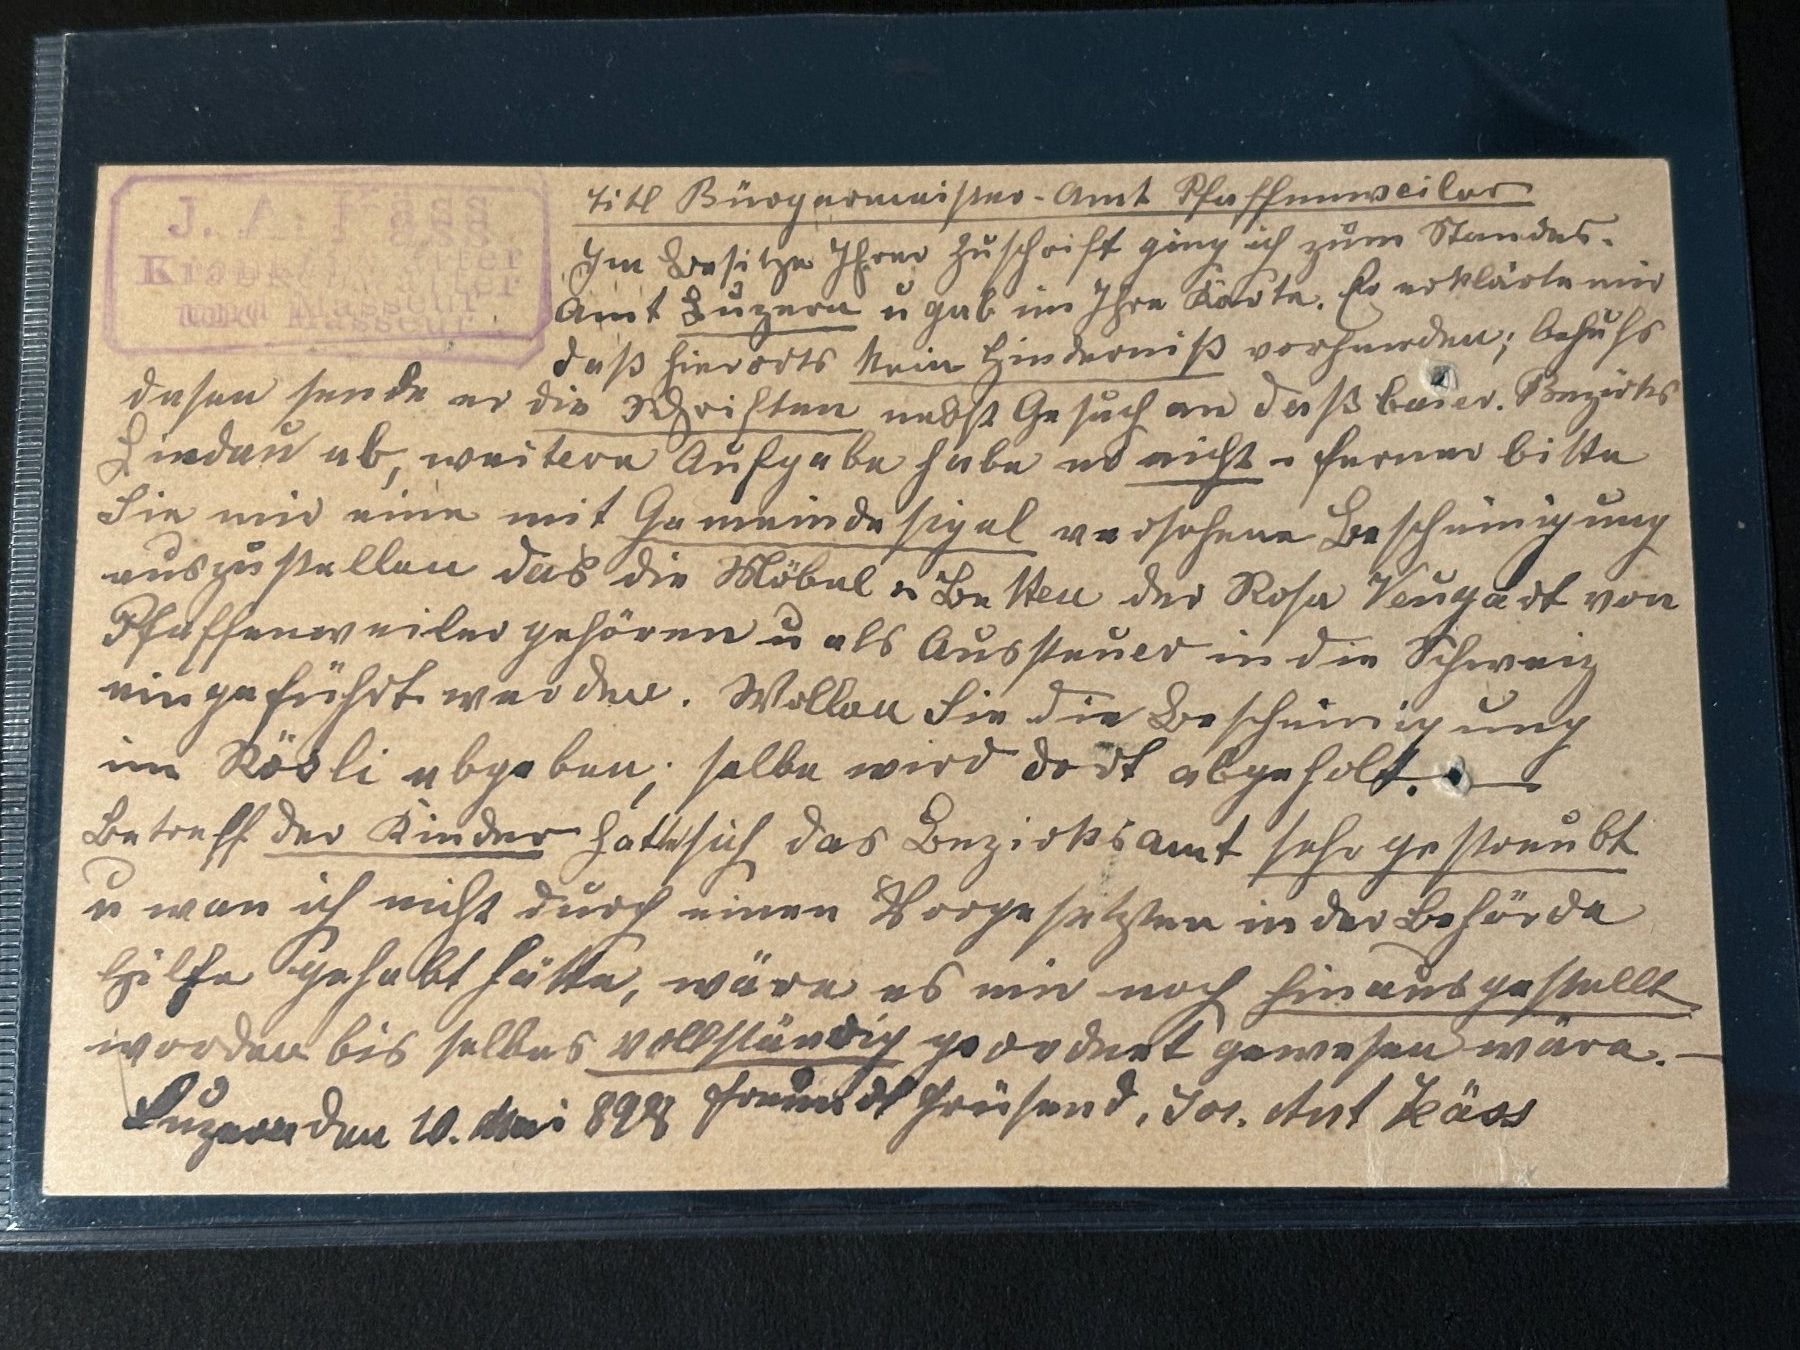 J. A. Käss
Krankenwärter
und Masseur.
titl Bürgermeister-Amt Pfaffenweiler
Im Besitze Ihrer Zuschrift ging ich zum Standes-
Amt Luzern u gab im Ihre Karte. Er erklärte mir
daß hierorts kein Hinderniß vorhanden; behufs
desen sende er die Schriften nebst Gesuch an daß baier. Bezirks
Lindau ab, weitere Aufgabe habe er nicht - ferner bitte
Sie mir eine mit Gemeindesigel versehene Bescheinigung
auszustellen das die Möbel u Betten der Rosa Neugart von
Pfaffenweiler gehören u als Aussteuer in die Schweiz
eingeführt werden. Wollen Sie die Bescheinigung
im Rösli abgeben; selbe wird dort abgeholt. —
Betreff der Kinder hatte sich das Bezirksamt sehr gestreubt
u wan ich nicht durch einen Vorgesetzten in der Behörde
Hilfe gehabt hätte, wäre es mir noch hinausgestellt
worden bis selbes vollständig geordnet gewesen wäre. —
Luzern den 10. Mai 898 freundl grüsend, Jos. Ant Käss